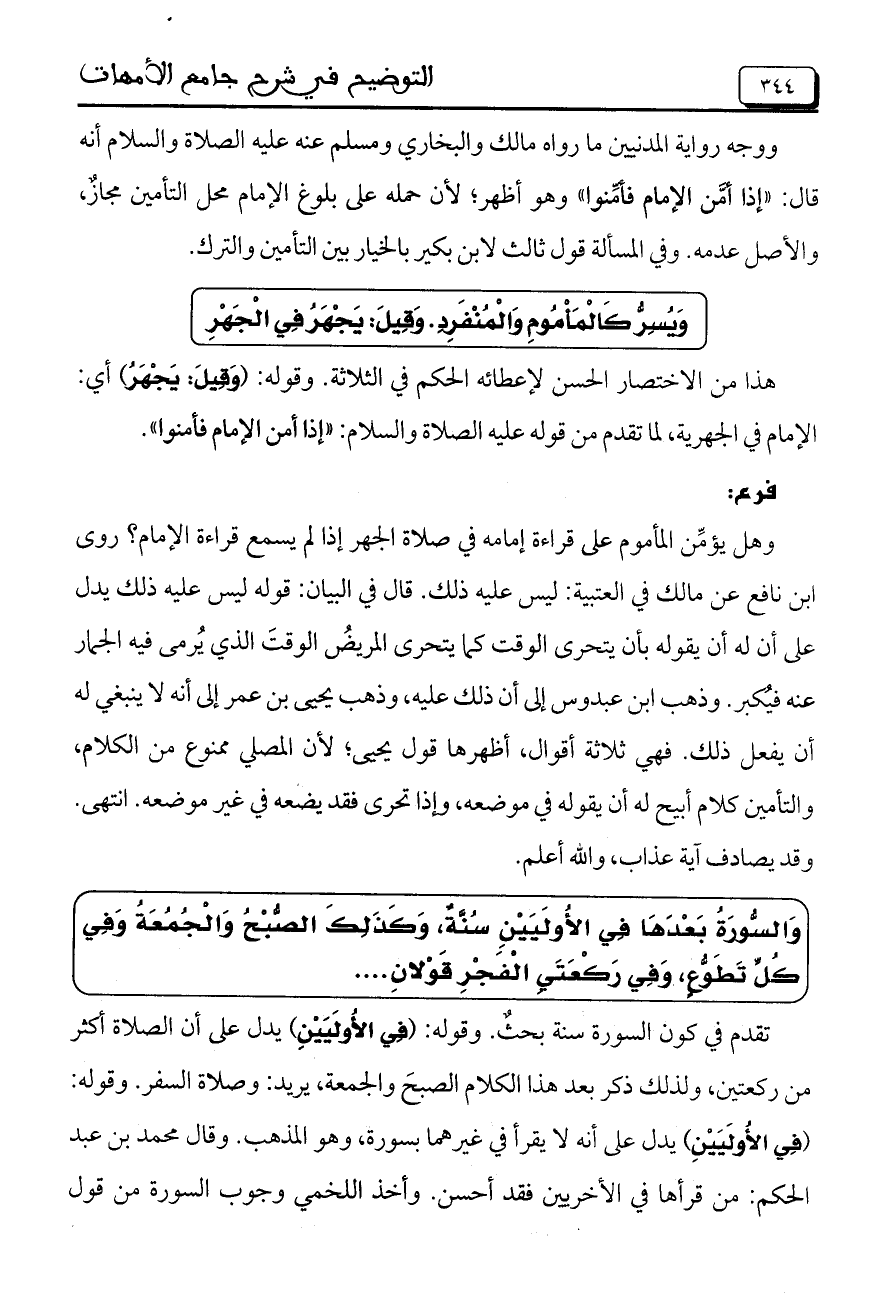 ٣٤٤
التوضيح في شرح جامع الأمهات
ووجه رواية المدنيين ما رواه مالك والبخاري ومسلم عنه عليه الصلاة والسلام أنه
قال: «إذا أمَّن الإمام فأمِّنوا» وهو أظهر؛ لأن حمله على بلوغ الإمام محل التأمين مجازٌ،
والأصل عدمه. وفي المسألة قول ثالث لابن بكير بالخيار بين التأمين والترك.
وَيُسِرُّ كَالْمَأْمُومِ وَالْمُنْفَرِدِ. وَقِيلَ: يَجْهَرُ فِي الْجَهْرِ
هذا من الاختصار الحسن لإعطائه الحكم في الثلاثة. وقوله: (وَقِيلَ: يَجْهَرُ) أي:
الإمام في الجهرية، لما تقدم من قوله عليه الصلاة والسلام: «إذا أمن الإمام فأمنوا».
فرع:
وهل يؤمِّن المأموم على قراءة إمامه في صلاة الجهر إذا لم يسمع قراءة الإمام؟ روى
ابن نافع عن مالك في العتبية: ليس عليه ذلك. قال في البيان: قوله ليس عليه ذلك يدل
على أن له أن يقوله بأن يتحرى الوقت كما يتحرى المريضُ الوقتَ الذي يُرمى فيه الجمار
عنه فيُكبر. وذهب ابن عبدوس إلى أن ذلك عليه، وذهب يحيى بن عمر إلى أنه لا ينبغي له
أن يفعل ذلك. فهي ثلاثة أقوال، أظهرها قول يحيى؛ لأن المصلي ممنوع من الكلام،
والتأمين كلام أبيح له أن يقوله في موضعه، وإذا تحرى فقد يضعه في غير موضعه. انتهى.
وقد يصادف آية عذاب، والله أعلم.
وَالسُّورَةُ بَعْدَهَا فِي الأُولَيَيْنِ سُنَّةٌ، وَكَذَلِكَ الصُّبْحُ وَالْجُمُعَةُ وَفِي
كُلِّ تَطَوُّعٍ، وَفِي رَكْعَتَيِ الْفَجْرِ قَوْلانِ....
تقدم في كون السورة سنة بحثٌ. وقوله: (فِي الأُولَيَيْنِ) يدل على أن الصلاة أكثر
من ركعتين، ولذلك ذكر بعد هذا الكلام الصبحَ والجمعة، يريد: وصلاة السفر. وقوله:
(فِي الأُولَيَيْنِ) يدل على أنه لا يقرأ في غيرهما بسورة، وهو المذهب. وقال محمد بن عبد
الحكم: من قرأها في الأخريين فقد أحسن. وأخذ اللخمي وجوب السورة من قول